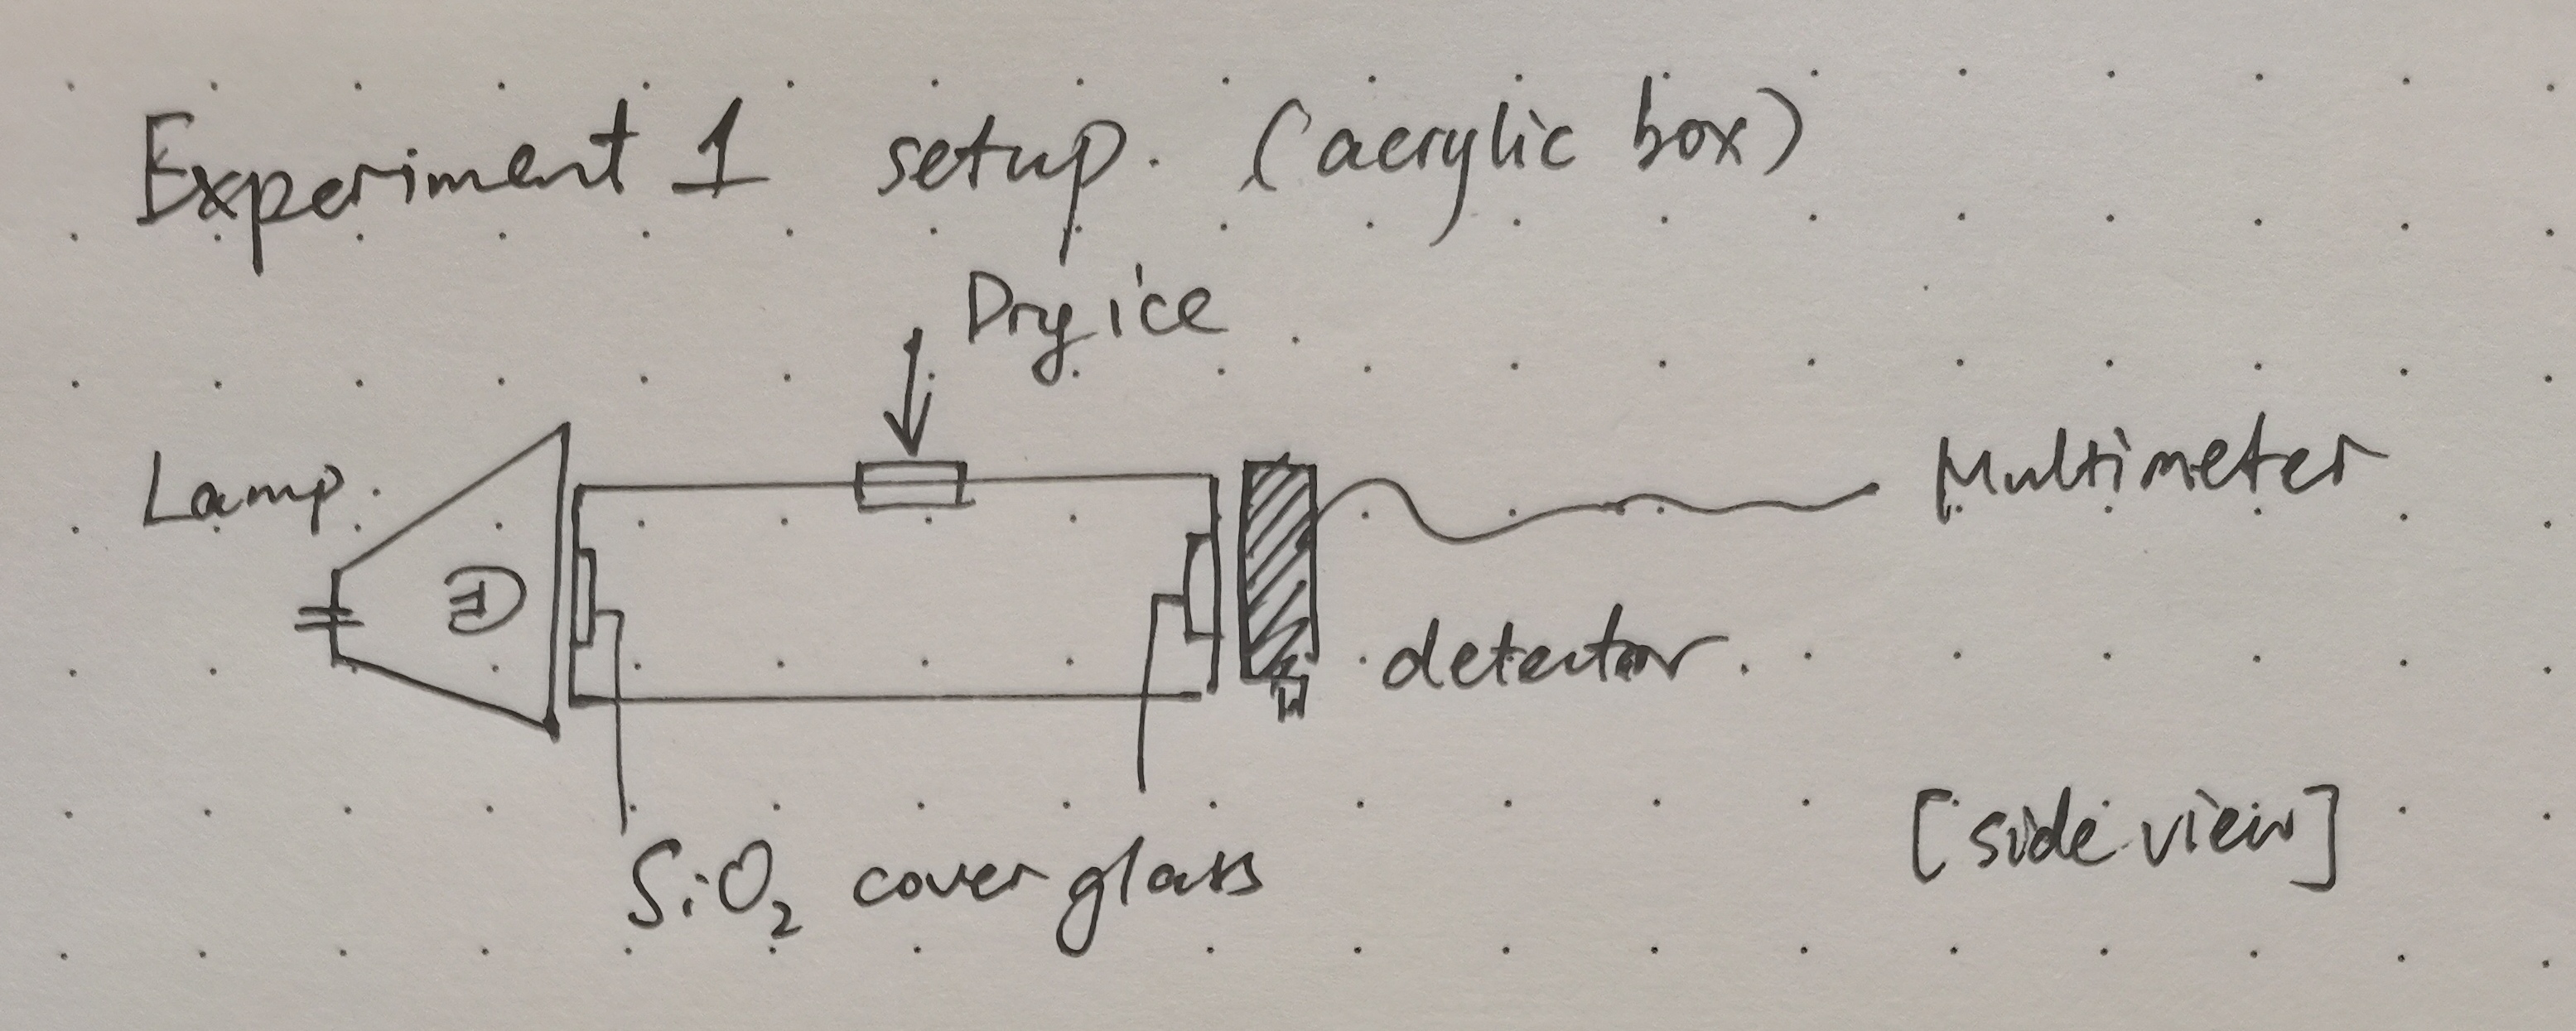 Experiment 1 setup. (acrylic box)
Dry ice
Lamp.
Multimeter
detector.
SiO₂ cover glass
[side view]